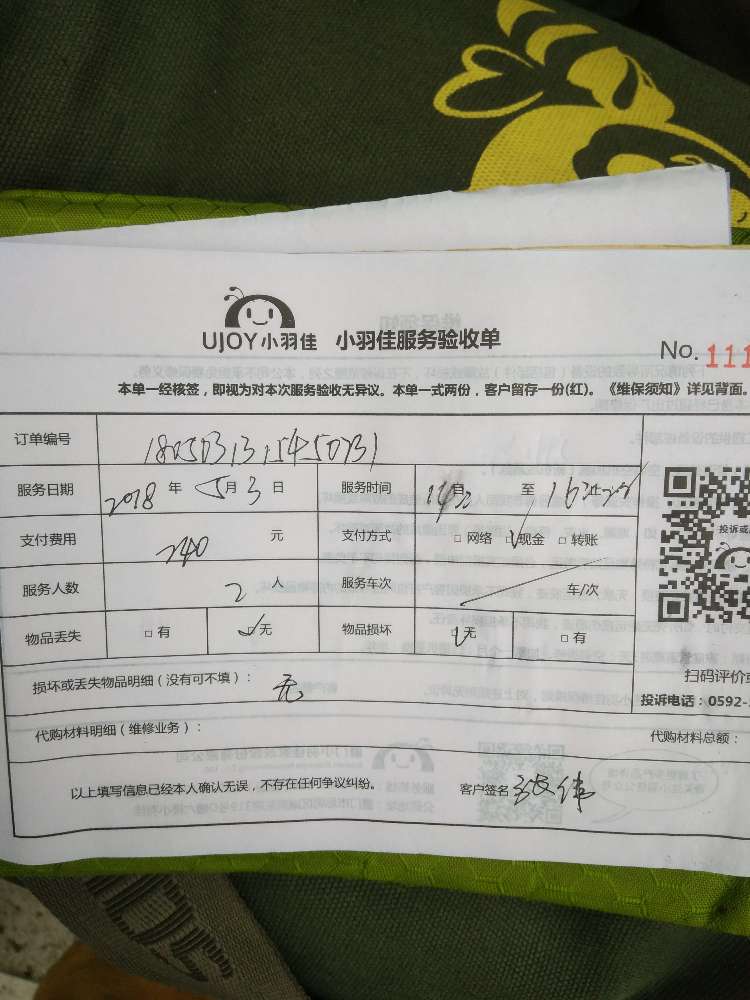 UJOY小羽佳 小羽佳服务验收单
No. 111
本单一经核签，即视为对本次服务验收无异议。本单一式两份，客户留存一份(红)。《维保须知》详见背面。
订单编号
服务日期 2018 年 5 月 3 日 服务时间 至
支付费用 240 元 支付方式 □ 网络 现金 □ 转账
投诉或
服务人数 2 人 服务车次 车/次
物品丢失 □ 有 无 物品损坏 无 □ 有
扫码评价或
损坏或丢失物品明细（没有可不填）： 无
投诉电话：0592-
代购材料明细（维修业务）： 代购材料总额：
以上填写信息已经本人确认无误，不存在任何争议纠纷。 客户签名